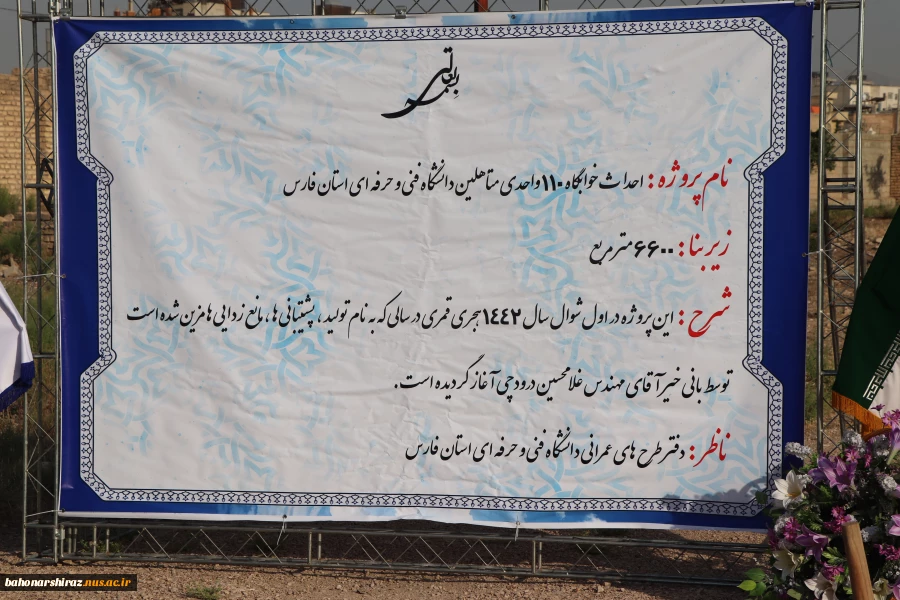 بسمه تعالی
نام پروژه : احداث خوابگاه ۱۱۰ واحدی متاهلین دانشگاه فنی و حرفه ای استان فارس
زیربنا : ۶۶۰۰ مترمربع
شرح : این پروژه در اول شوال سال ۱۴۴۲ هجری قمری در سالی که به نام تولید ، پشتیبانی ها ، مانع زدایی ها مزین شده است
توسط بانی خیر آقای مهندس غلامحسین درودچی آغاز گردیده است .
ناظر : دفتر طرح های عمرانی دانشگاه فنی و حرفه ای استان فارس
bahonarshiraz.nus.ac.ir